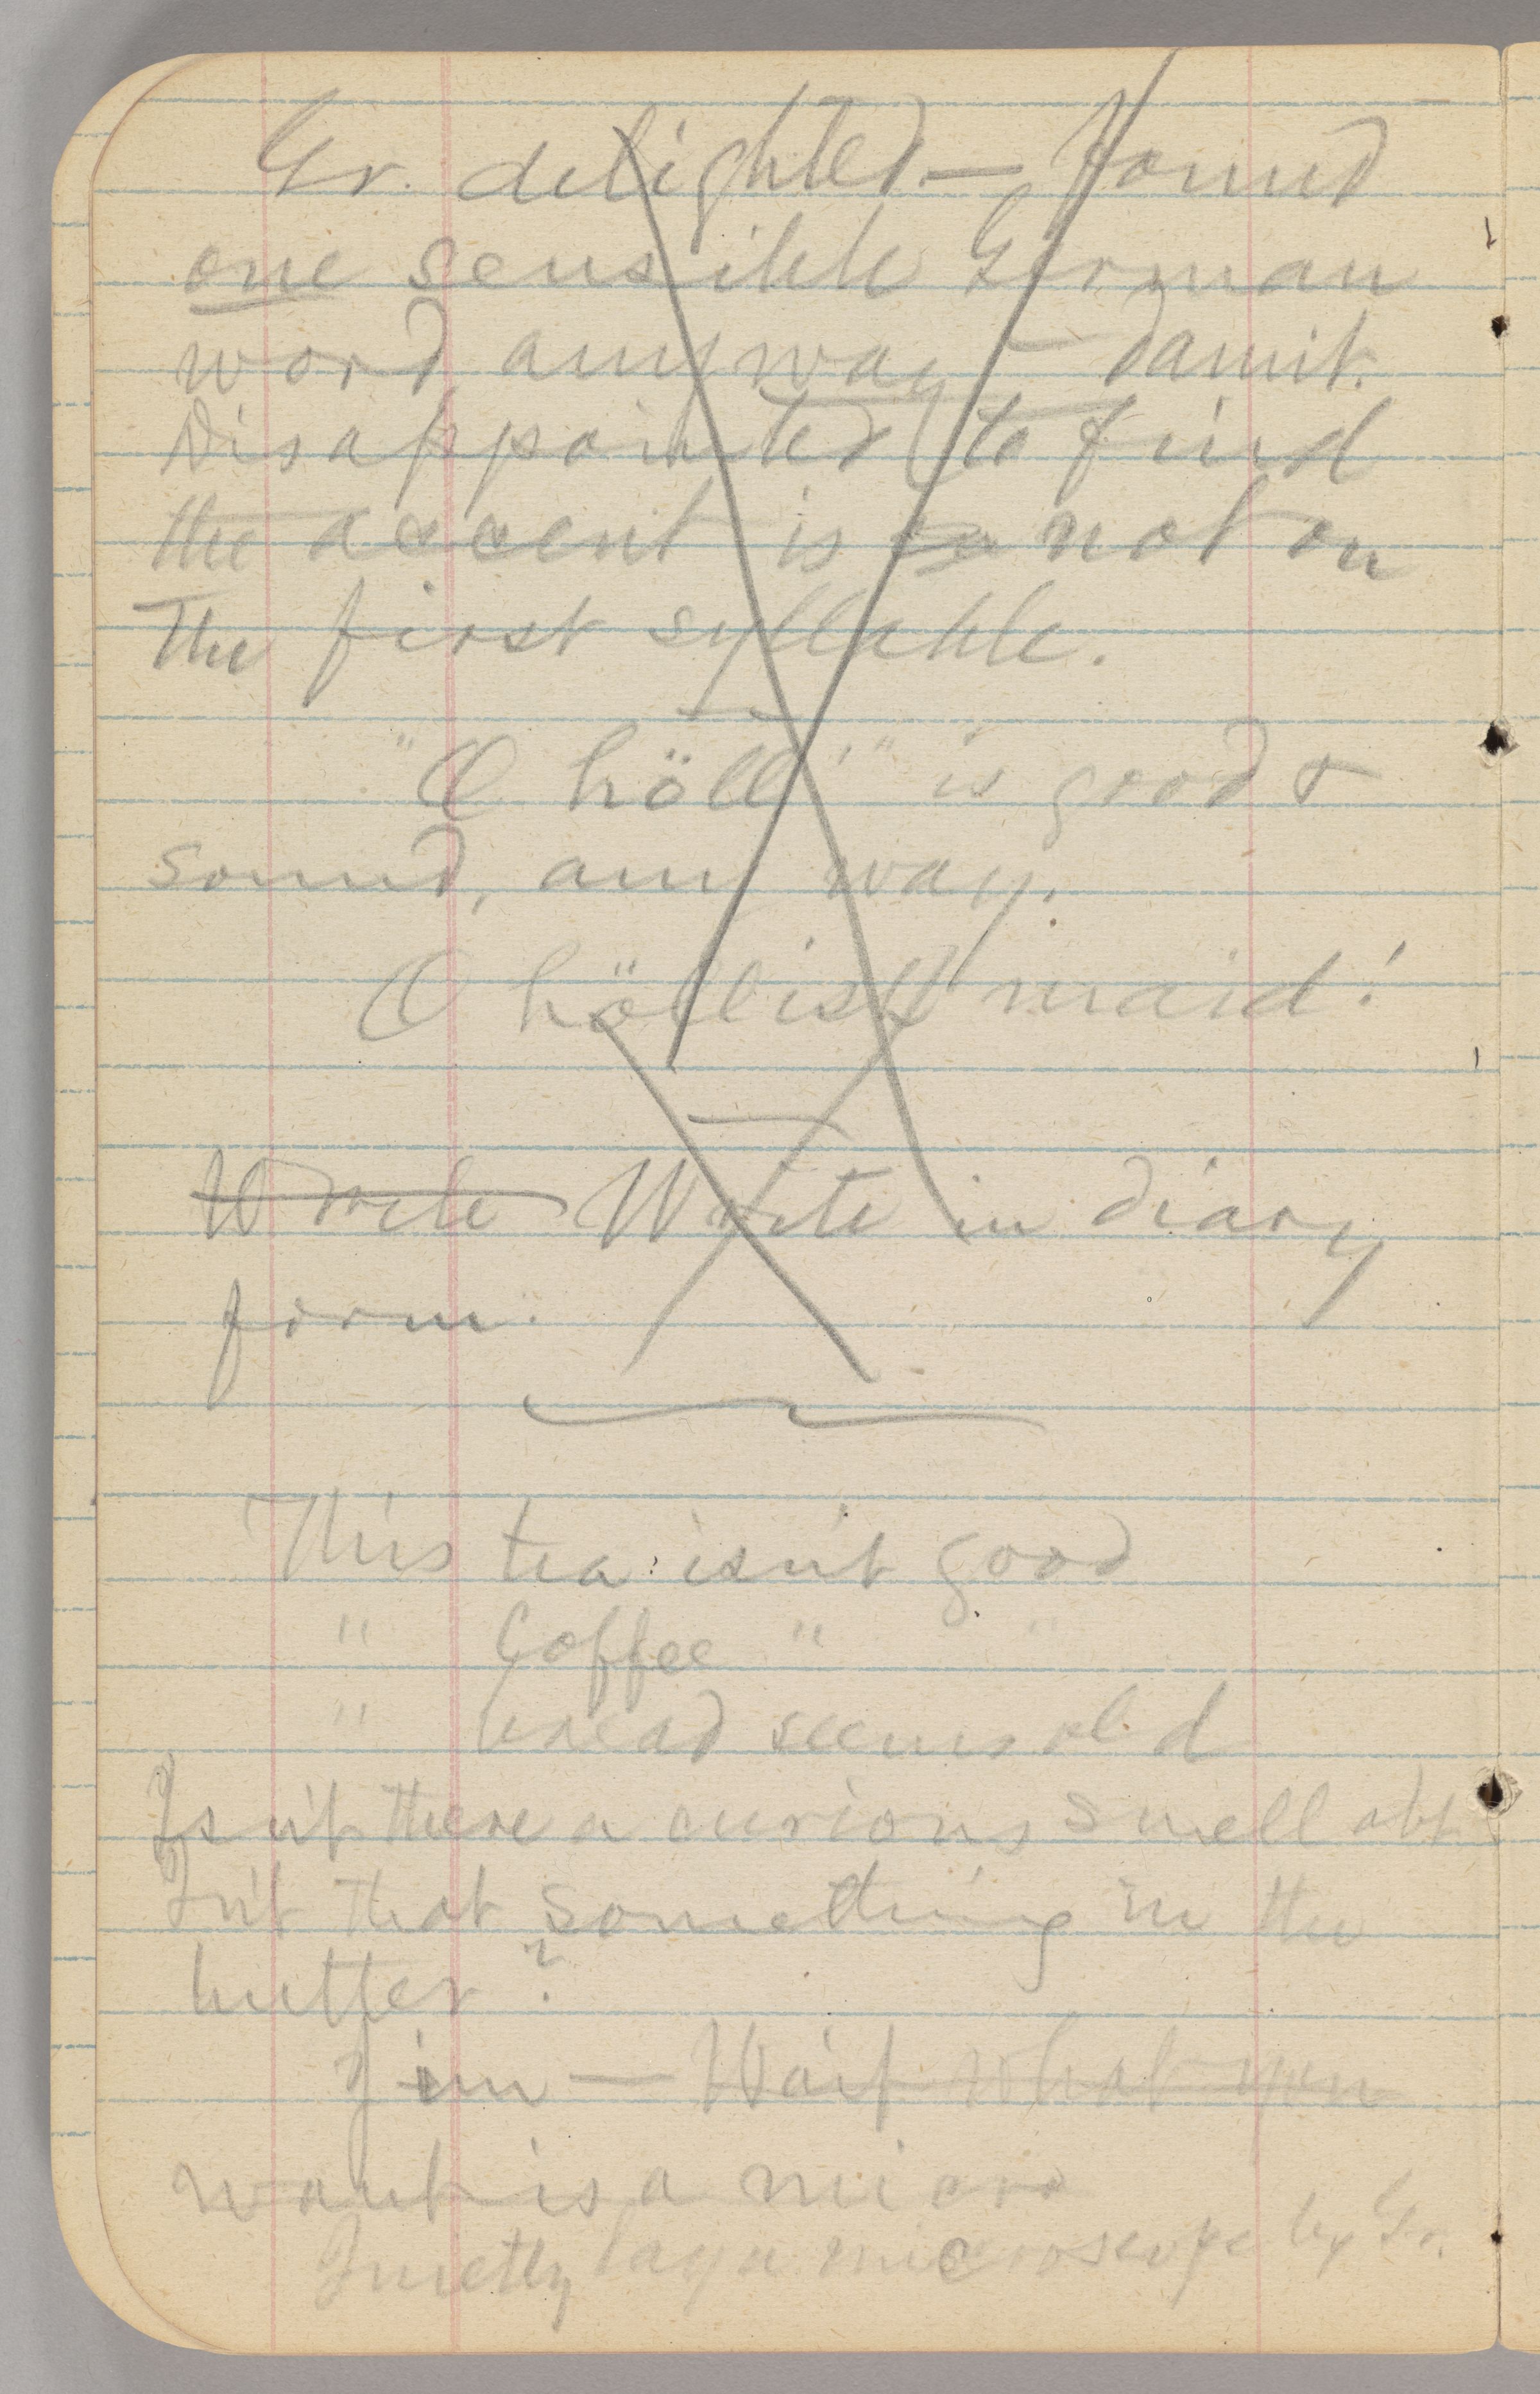 Gr. delighted — found
one sensible German
word anyway — damit.
Disappointed to find
the accent is not on
the first syllable.
"O höll!" is good &
sound, any way.
O höllisch maid!
Write Write in diary
form.
This tea isn't good
" Coffee " "
" bread seems old
Isn't there a curious smell abt
Isn't that something in the
butter?
Jim — Wait what you
want is a micro
Quietly lay a microscope by Gr.